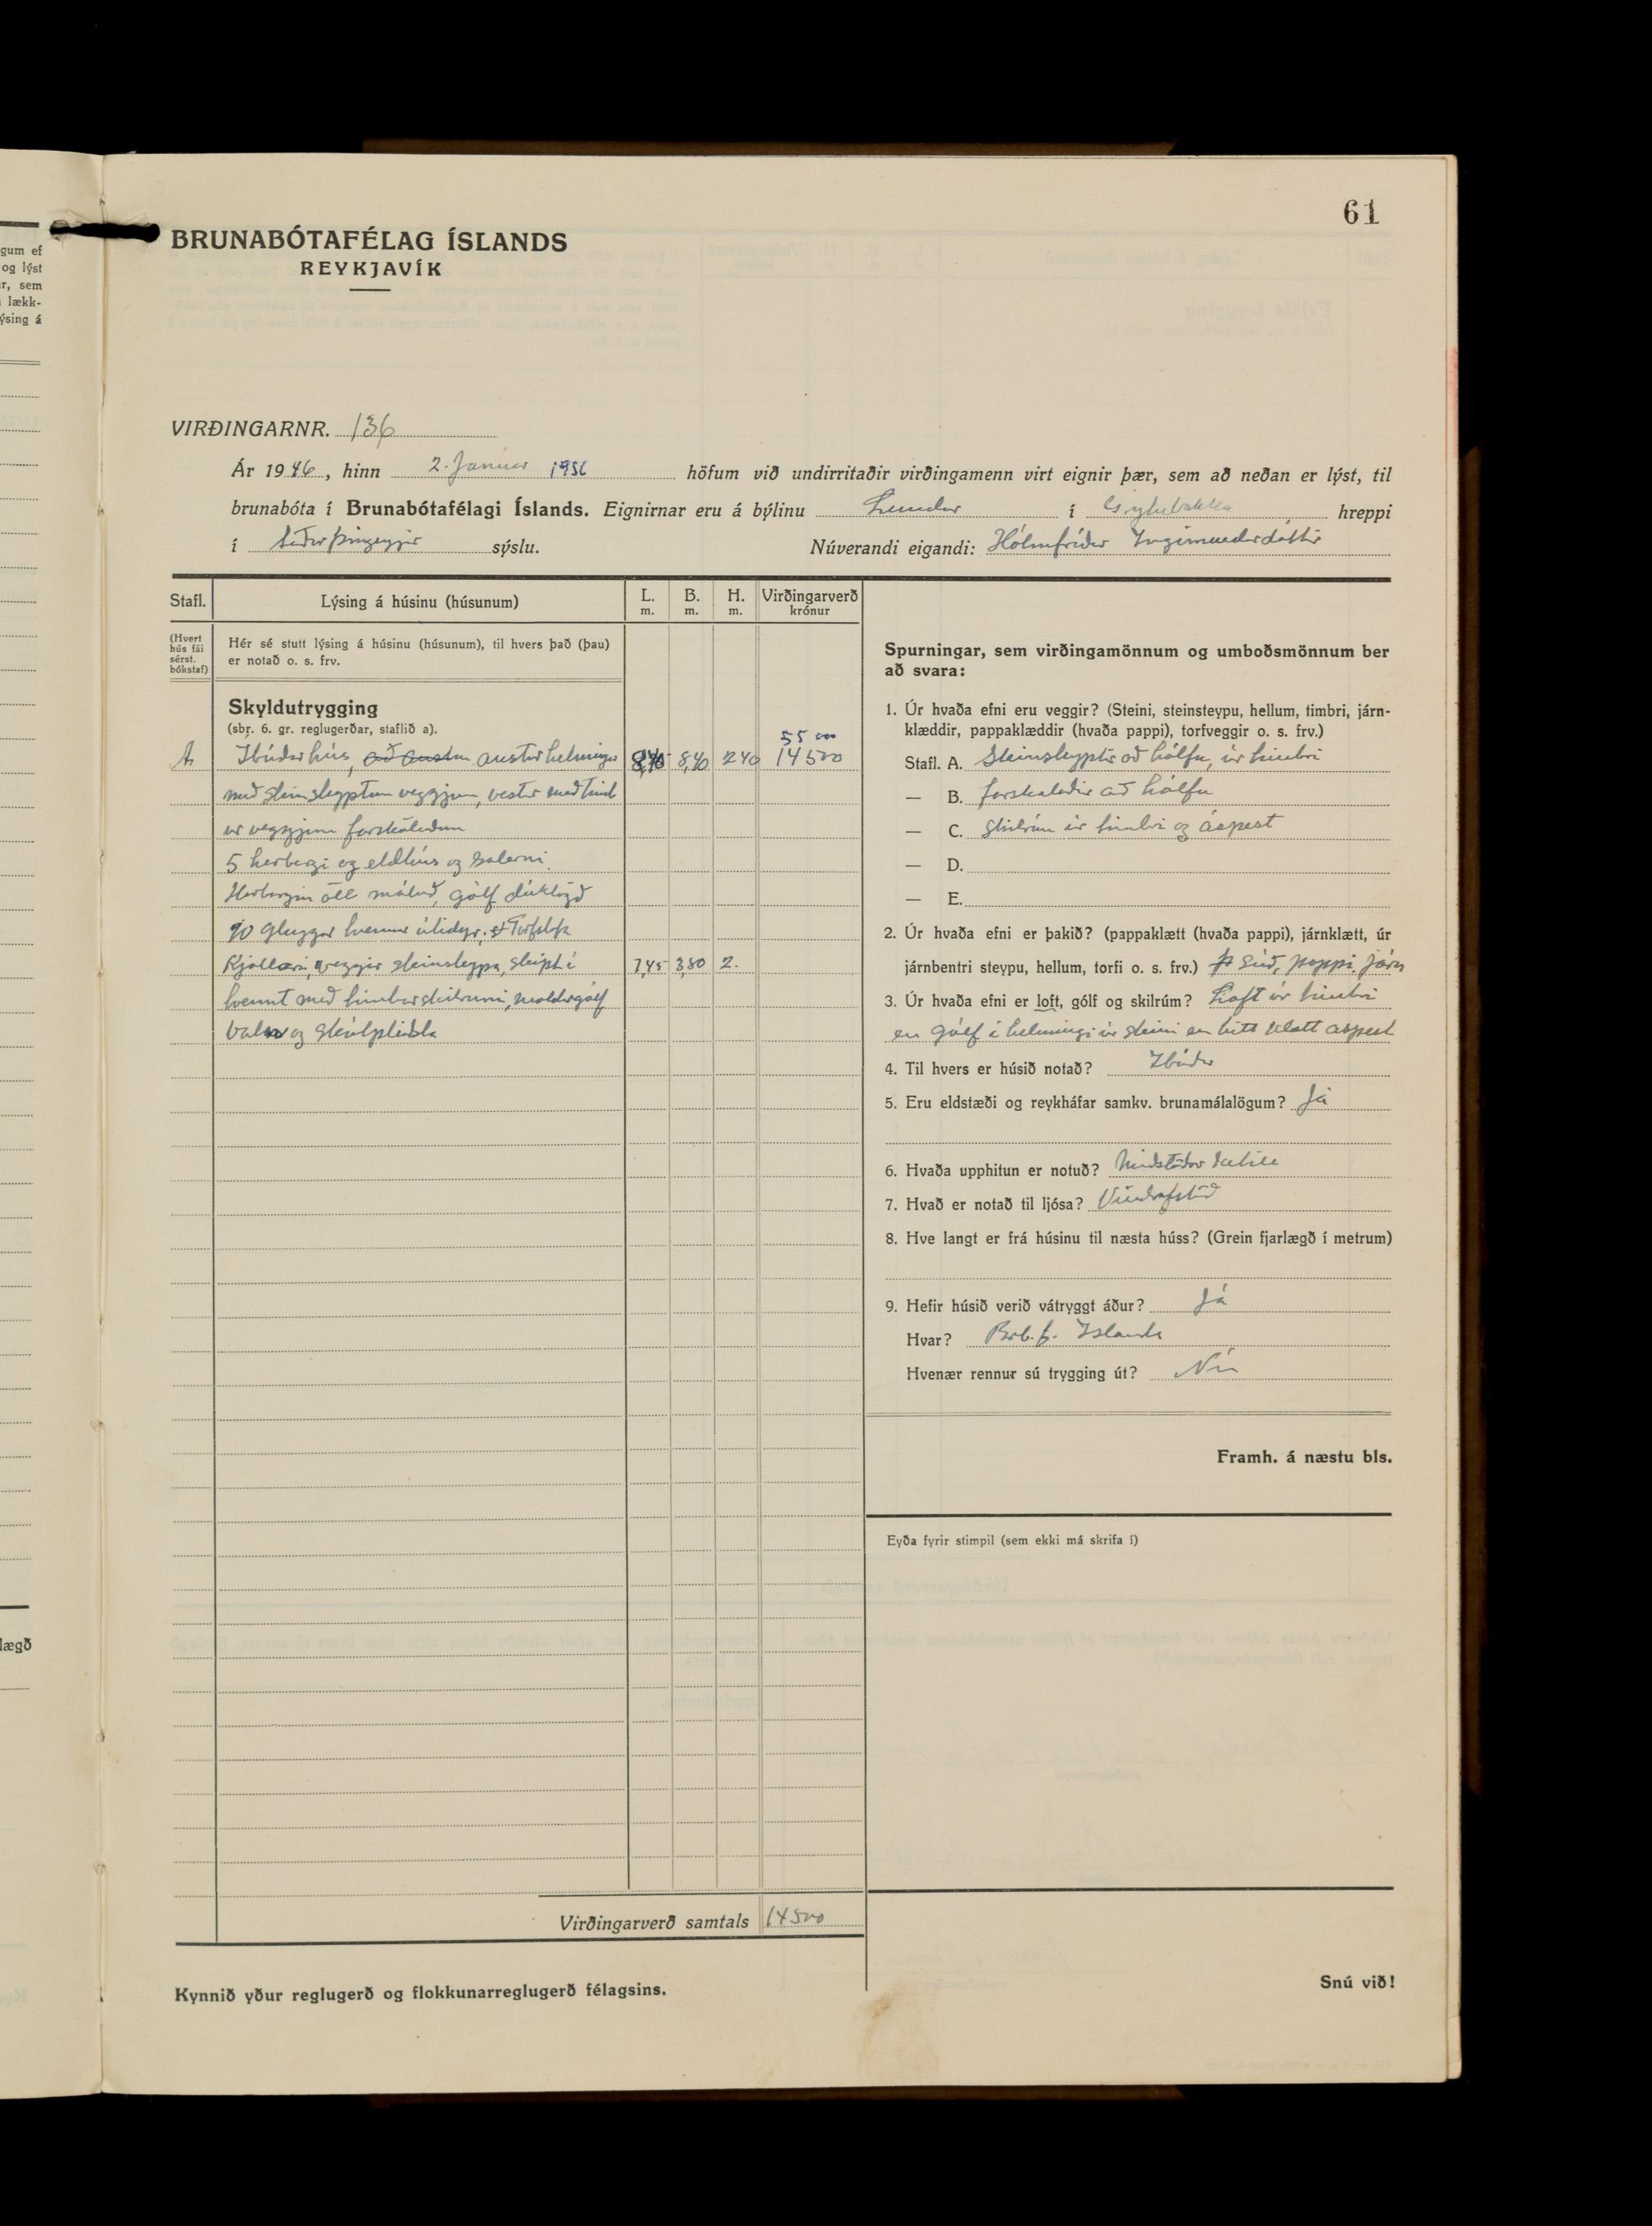 gum ef
og lýst
r, sem
lækk-
ýsing á
lægð
61
BRUNABÓTAFÉLAG ÍSLANDS
REYKJAVÍK
VIRÐINGARNR. 136
Ár 1946, hinn 2. Janúar 1956 höfum við undirritaðir virðingamenn virt eignir þær, sem að neðan er lýst, til
brunabóta í Brunabótafélagi Íslands. Eignirnar eru á býlinu Lundur í hreppi
í Suður þingeyjar sýslu. Núverandi eigandi: Hólmfríður Ingimundardóttir
Stafl. Lýsing á húsinu (húsunum) L. m. B. m. H. m. Virðingarverð krónur
(Hvert hús fái sérst. bókstaf)
Hér sé stutt lýsing á húsinu (húsunum), til hvers það (þau)
er notað o. s. frv.
Skyldutrygging
(sbr. 6. gr. reglugerðar, staflið a).
55 000
A Íbúðarhús, að austan austurhelmingur 8,40 8,40 240 14500
með steinsteyptum veggjum, vestur með timb
ur veggjum forsköluðum
5 herbergi og eldhús og salerni.
Herbergin öll máluð, gólf dúklögð
10 gluggar tvennar útidyr,
Kjallari, veggir steinsteypa, skipt í 7,45 3,80 2.
tvennt með timburskilrúmi, moldargólf
Vatn og skólpleiðsla
Virðingarverð samtals 14500
Kynnið yður reglugerð og flokkunarreglugerð félagsins.
Spurningar, sem virðingamönnum og umboðsmönnum ber
að svara:
1. Úr hvaða efni eru veggir? (Steini, steinsteypu, hellum, timbri, járn-
klæddir, pappaklæddir (hvaða pappi), torfveggir o. s. frv.)
Stafl. A. Steinsteyptir að hálfu, úr timbri
— B. forskalaðir að hálfu
— C. Skilrúm úr timbri og áspest
— D.
— E.
2. Úr hvaða efni er þakið? (pappaklætt (hvaða pappi), járnklætt, úr
járnbentri steypu, hellum, torfi o. s. frv.) Súð, pappi. Járn
3. Úr hvaða efni er loft, gólf og skilrúm? Loft úr timbri
en gólf í helmingi úr steini en hitt klætt aspest
4. Til hvers er húsið notað? Íbúðar
5. Eru eldstæði og reykháfar samkv. brunamálalögum? Já
6. Hvaða upphitun er notuð? Miðstöðvar ketill
7. Hvað er notað til ljósa? Vindrafstöð
8. Hve langt er frá húsinu til næsta húss? (Grein fjarlægð í metrum)
9. Hefir húsið verið vátryggt áður? Já
Hvar? Brb.f. Íslands
Hvenær rennur sú trygging út? Nú
Framh. á næstu bls.
Eyða fyrir stimpil (sem ekki má skrifa í)
Snú við!